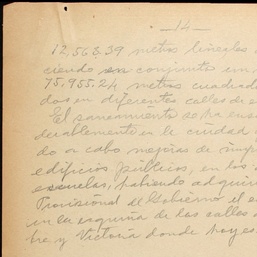 -14-
12,563,39 metros lineales
siendo su conjunto un
75,955.24 metros cuadra
dos en diferentes calles de
El saneamiento se ha
durablemente en la ciudad
do a cabo mejoras de
edificios públicos, en los
escuelas, habiendo adquiri
Provisional de Gobierno el e
en la esquina de las calles
tre y Victoria donde hoy es